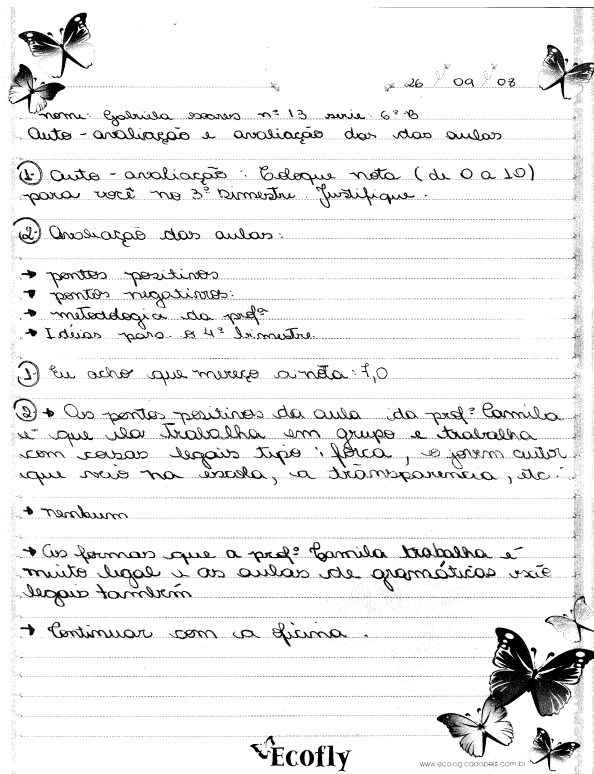 26 / 09 / 08
nome: Gabriela soares nº 13 serie: 6ª B
Auto-avaliação e avaliação das das aulas
1- Auto-avaliação: Coloque nota (de 0 a 10)
para você no 3º bimestre. Justifique.
2- Avaliação das aulas:
→ pontos positivos
→ pontos negativos:
→ metodologia da profª
→ Idéias para o 4º bimestre.
1) Eu acho que mereço a nota: 7,0
2) → Os pontos positivos da aula da profª Camila
é que ela trabalha em grupo e trabalha
com coisas legais tipo: forca, o jovem autor
que veio na escola, a transparencia, etc.
→ nenhum
→ As formas que a profª Camila trabalha é
muito legal e as aulas de gramáticas são
legais também
→ Continuar com a oficina.
Ecofly
www.ecolog.cadapeis.com.br